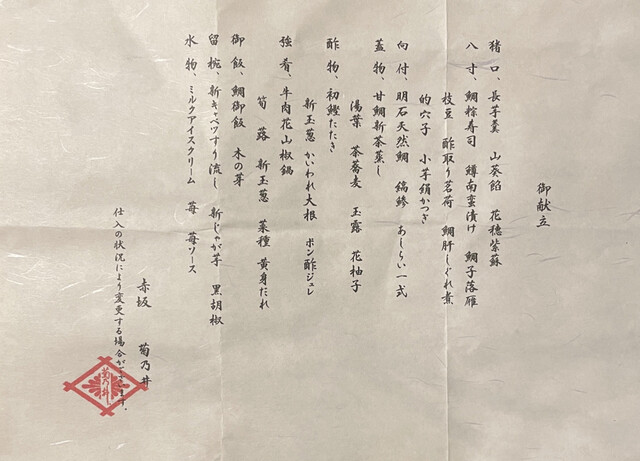 御献立
猪口、長芋羹 山葵餡 花穂紫蘇
八寸、鯛粽寿司 鱒南蛮漬け 鯛子落雁
枝豆 酢取り茗荷 鯛肝しぐれ煮
的穴子 小芋絹かつぎ
向付、明石天然鯛 縞鯵 あしらい一式
蓋物、甘鯛新茶蒸し
湯葉 茶蕎麦 玉露 花柚子
酢物、初鰹たたき
新玉葱 かいわれ大根 ポン酢ジュレ
強肴、牛肉花山椒鍋
筍 蕗 新玉葱 菜種 黄身たれ
御飯、鯛御飯 木の芽
留椀、新キャベツすり流し 新じゃが芋 黒胡椒
水物、ミルクアイスクリーム 苺 苺ソース
赤坂 菊乃井
仕入の状況により変更する場合がございます。
菊乃井